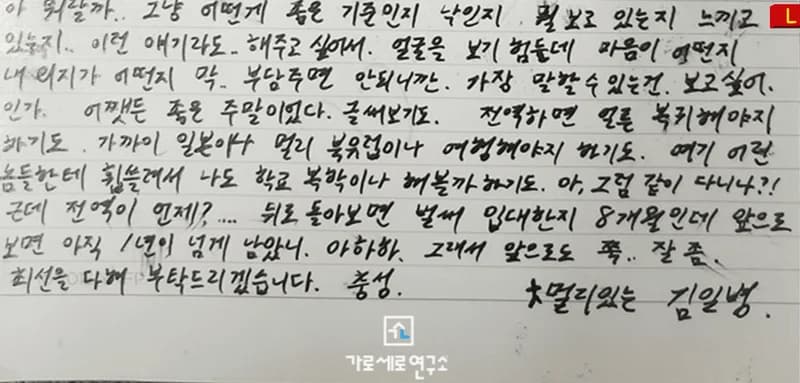 아 뭐랄까.. 그냥 어떤게 좋은 기준인지 낙인지. 뭘 보고 있는지 느끼고
있는지.. 이런 얘기라도.. 해주고 싶어서. 얼굴을 보기 힘든데 마음이 어떤지
내 의지가 어떤지 막.. 부담주면 안되니깐. 가장 말할 수 있는건. 보고싶어.
인가. 어쨋든 좋은 주말이었다. 글써보기도. 전역하면 얼른 복귀해야지
하기도. 가까이 일본이나 멀리 북유럽이나 여행해야지 하기도. 여기 어린
놈들한테 휩쓸려서 나도 학교 복학이나 해볼까 하기도. 아, 그럼 같이 다니나?!
근데 전역이 언제?.... 뒤로 돌아보면 벌써 입대한지 8개월인데 앞으로
보면 아직 1년이 넘게 남았니. 아하하. 그래서 앞으로도 쭉.. 잘 좀.
최선을 다해 부탁드리겠습니다. 충성.
멀리있는 김일병.
가로세로연구소
L